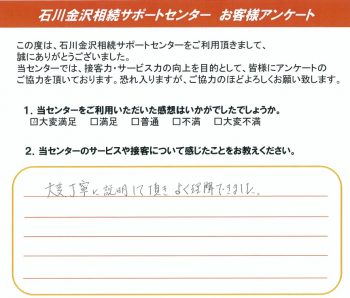 石川金沢相続サポートセンター お客様アンケート
この度は、石川金沢相続サポートセンターをご利用頂きまして、
誠にありがとうございました。
当センターでは、接客力・サービス力の向上を目的として、皆様にアンケートの
ご協力を頂いております。恐れ入りますが、ご協力のほどよろしくお願い致します。
1．当センターをご利用いただいた感想はいかがでしたでしょうか。
☑大変満足 □満足 □普通 □不満 □大変不満
2．当センターのサービスや接客について感じたことをお教えください。
大変丁寧に説明して頂き よく理解できました。